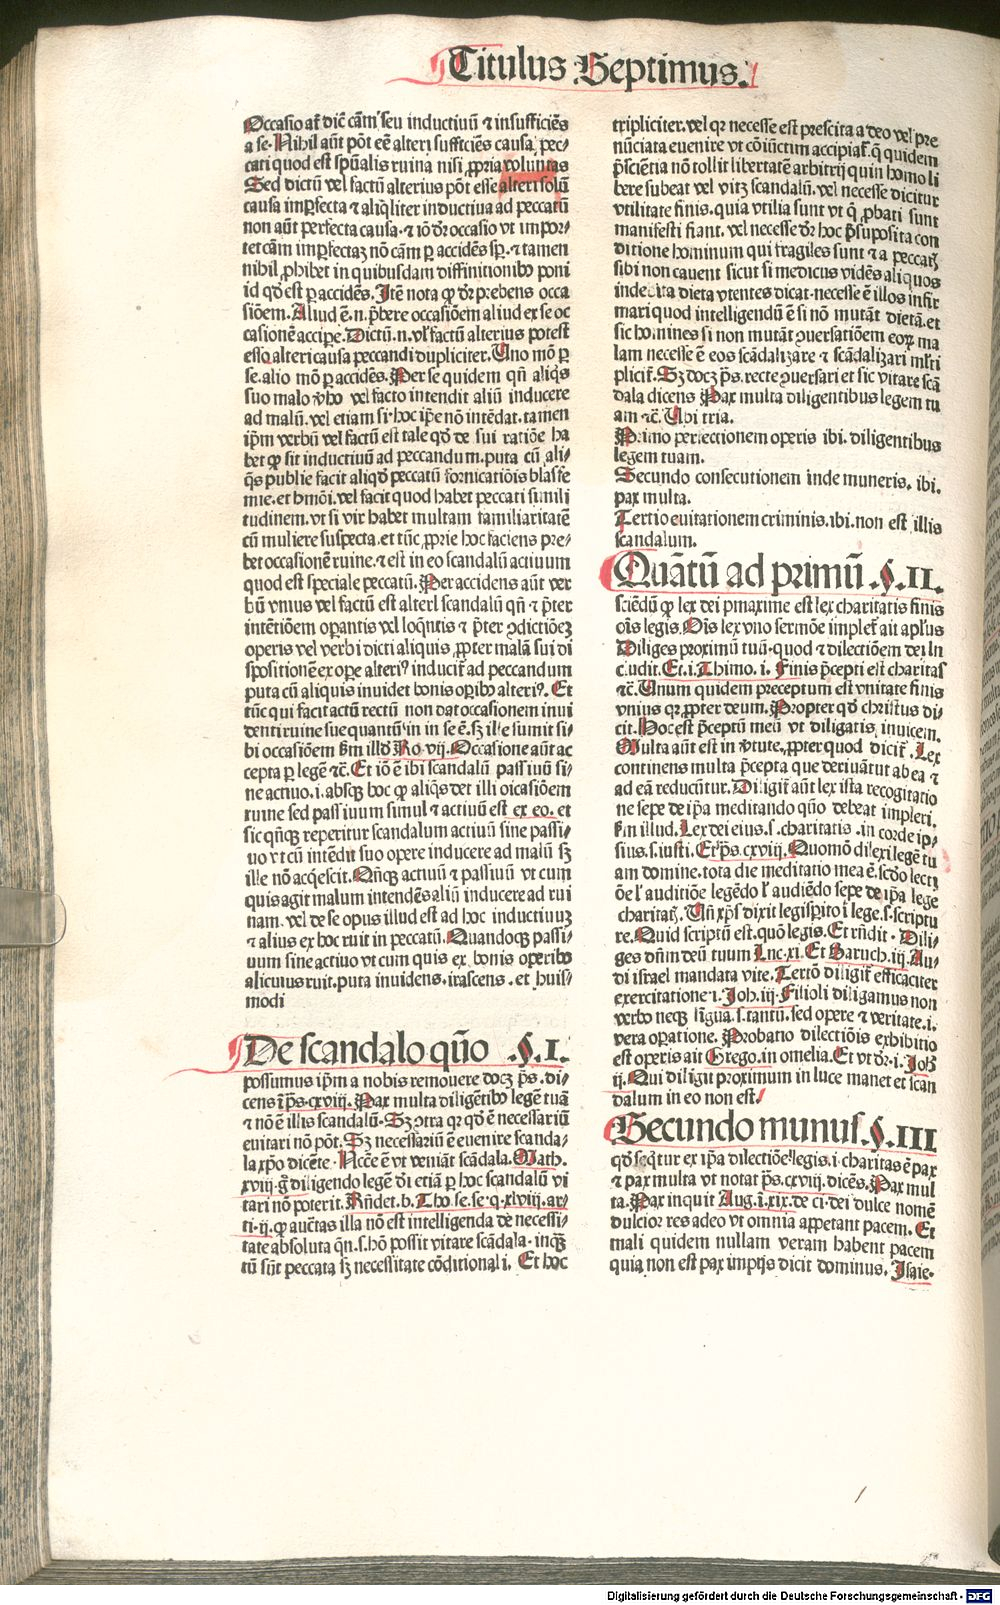 Titulus Septimus.
Occasio at̄ dic̄ cām seu inductiuū ⁊ insufficiēs
a se. Nihil aūt pōt eē alteri sufficiēs causa pec⸗
cati quod est spūalis ruina nisi ꝓpria voluntas
Sed dictū vel factū alterius pōt esse alteri solū
causa imꝑfecta ⁊ aliq̄liter inductiua ad peccatū
non aūt perfecta causa. ⁊ iō dr̄ occasio vt impor⸗
tet cām imꝑfectaꝫ nō cām ꝑ accidēs sp̄. ⁊ tamen
nihil ꝓhibet in quibusdam diffinitionibꝰ poni
id qd̄ est ꝑ accidēs. Itē nota ꝙ dr̄ prebens occa
siōem. Aliud ē.n. p̄bere occasiōem aliud ex se oc
casionē accipe. Dictū.n. vl̓ factū alterius potest
esse alteri causa peccandi dupliciter. Uno mō ꝑ
se. alio mō ꝑ accidēs. Per se quidem qn̄ aliq̄s
suo malo v̓bo vel facto intendit aliū inducere
ad malū. vel etiam si hoc ip̄e nō intēdat. tamen
ip̄m verbū vel factū est tale qd̄ de sui ratiōe ha
bet ꝙ sit inductiuū ad peccandum. puta cū ali⸗
q̄s publice facit aliqd̄ peccatū fornicatiōis blasfe
mie. et hmōi. vel facit quod habet peccati simili
tudinem. vt si vir habet multam familiaritatē
cū muliere suspecta. et tūc ꝓprie hoc faciens pre⸗
bet occasionē ruine. ⁊ est in eo scandalū actiuum
quod est speciale peccatū. Per accidens aūt ver
bū vnius vel factū est alteri scandalū qn̄ ⁊ p̄ter
intētiōem oꝑantis vel loq̄ntis ⁊ p̄ter ꝯdictiōeꝫ
operis vel verbi dicti aliquis ꝓpter malā sui di
spositionē ex ope alteriꝰ inducit̄ ad peccandum
puta cū aliquis inuidet bonis oꝑibꝰ alteriꝰ. Et
tūc qui facit actū rectū non dat occasionem inui
denti ruine sue quantū in se ē. sꝫ ille sumit si⸗
bi occasiōem s̄m illd̄ Ro. vij. Occasione aūt ac
cepta ꝑ legē ⁊c̄. Et iō ē ibi scandalū passiuū si⸗
ne actiuo. i. absqꝫ hoc ꝙ aliq̄s det illi oicasiōem
ruine sed passiuum simul ⁊ actiuū est ex eo. et
sic qn̄qꝫ reperitur scandalum actiuū sine passi⸗
uo vt cū intēdit suo opere inducere ad malū sꝫ
ille nō acq̄escit. Qn̄qꝫ actiuū ⁊ passiuū vt cum
quis agit malum intendēs aliū inducere ad rui
nam. vel de se opus illud est ad hoc inductiuuꝫ
⁊ alius ex hoc ruit in peccatū. Quandoqꝫ passi⸗
uum sine actiuo vt cum quis ex bonis operibꝰ
alicuius ruit. puta inuidens. irascens. et huis⸗
modi
De scandalo quō .§.I.
possumus ip̄m a nobis remouere docꝫ ps̄. di⸗
cens ī ps̄. cxviij. Pax multa diligētibꝰ legē tuā
⁊ nō ē illis scandalū. Sꝫ ꝯtra qꝛ qd̄ ē necessariū
euitari nō pōt. Sꝫ necessariū ē euenire scanda⸗
la xp̄o dicēte. Nccē̄ ē vt veniāt scādala. Math.
xviij. g̊ diligendo legē di etiā ꝑ hoc scandalū vi
tari nō poterit. Rn̄det. b. Tho. se. se. q. xlviij. ar⸗
ti. ij. ꝙ auctas illa nō est intelligenda de necessi⸗
tate absoluta qn̄. s. hō possit vitare scādala. inqꝫ
tū sūt peccata sꝫ necessitate cōditionali. Et hoc
tripliciter. vel qꝛ necesse est prescita a deo vel pre
nūciata euenire vt cōiunctim accipiat̄. q̄ quidem
p̄scientia nō tollit libertatē arbitrij quin homo li
bere subeat vel vitꝫ scandalū. vel necesse dicitur
vtilitate finis. quia vtilia sunt vt q̄ ꝓbati sunt
manifesti fiant. vel necesse dr̄ hoc p̄suposita con
ditione hominum qui fragiles sunt ⁊ a peccatꝭ
sibi non cauent sicut si medicus vidēs aliquos
indebita dieta vtentes dicat. necesse ē illos infir
mari quod intelligendū ē si nō mutāt dietā. et
sic homines si non mutāt ꝯuersatiōem eoꝝ ma
lam necesse ē eos scādalizare ⁊ scādalizari ml̓ti
plicit̄. Sꝫ docꝫ ps̄. recte ꝯuersari et sic vitare scā
dala dicens Pax multa diligentibus legem tu
am ⁊c̄. Ubi tria.
Primo perfectionem operis ibi. diligentibus
legem tuam.
Secundo consecutionem inde muneris. ibi.
pax multa.
Tertio euitationem criminis. ibi. non est illis
scandalum.
Quātū ad primū .§.II.
sciēdū ꝙ lex dei ꝑmaxime est lex charitatis finis
oīs legis. Oīs lex vno sermōe implet̄ ait apl̓us
Diliges proximū tuū. quod ⁊ dilectiōem dei in
cludit. Et. i. Thimo. i. Finis p̄cepti est charitas
⁊c̄. Unum quidem preceptum est vnitate finis
vnius qꝛ ꝓpter deum. Propter qd̄ christus di⸗
cit. Hoc est p̄ceptū meū vt diligatis inuicem.
Multa aūt est in v̓tute. ꝓpter quod dicit̄. Lex
continens multa p̄cepta que deriuātur ab ea ⁊
ad eā reducūtur. Diligit̄ aūt lex ista recogitatio
ne sepe de ip̄a meditando quō debeat impleri.
s̄m illud. Lex dei eius. s. charitatis. in corde ip⸗
sius. s. iusti. Et ps̄. cxviij. Quomō dilexi legē tu
am domine. tota die meditatio mea ē. scdo lecti
ōe l̓ auditiōe legēdo l̓ audiēdo sepe de ip̄a lege
charitatꝭ. Un̄ xp̄s dixit legisꝑito ī lege. s. scriptu
re. Quid scriptū est. quō legis. Et rn̄dit. Dili⸗
ges dn̄m deū tuum Luc. xi. Et Baruch. iij. Au⸗
di israel mandata vite. Tertō diligit̄ efficaciter
exercitatione. i. Joh. iij. Filioli diligamus non
verbo neqꝫ ligua. s. tantū. sed opere ⁊ veritate. i.
vera oꝑatione. Probatio dilectiōis exhibitio
est operis ait Grego. in omelia. Et vt dr̄. i. Joh̄
ij. Qui diligit proximum in luce manet et scan
dalum in eo non est.
Secundo munus. §.III
qd̄ seq̄tur ex ip̄a dilectiōe legis. i. charitas ē pax
⁊ pax multa vt notat ps̄. cxviij. dicēs. Pax mul
ta. Pax inquit Aug. ī. xix. de ci. dei dulce nomē
dulcior res adeo vt omnia appetant pacem. Et
mali quidem nullam veram habent pacem
quia non est pax impijs dicit dominus. Isaie.
Digitalisierung gefördert durch die Deutsche Forschungsgemeinschaft - DFG